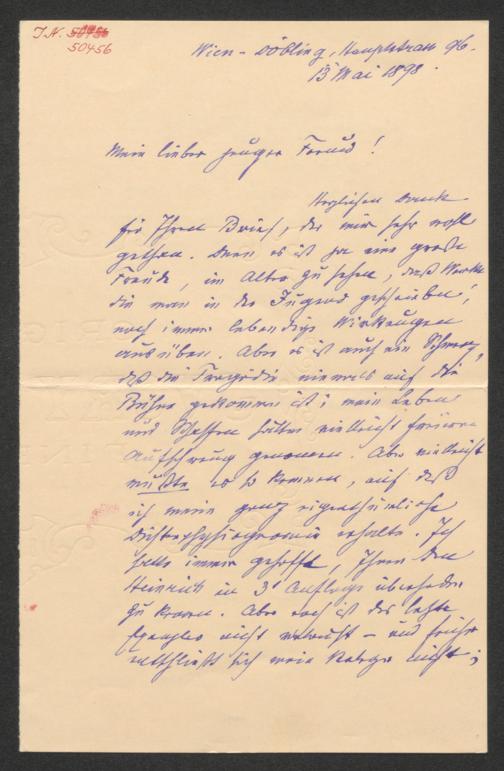 I.N. 50456
50456
Wien-Döbling, Hauptstrasse 96.
13 Mai 1898.
Mein lieber junger Freund!
Herzlichen Dank
für Ihren Brief, der mir sehr wohl
gethan. Denn es ist ja eine große
Freude, im Alter zu sehen, daß Werke
die man in der Jugend geschrieben,
noch immer lebendige Wirkungen
ausüben. Aber es ist auch ein Schmerz,
daß die Tragödie niemals auf die
Bühne gekommen ist; mein Leben
und Schaffen hätten vielleicht
Aufschwung genommen. Aber vielleicht
mußte es so kommen, auf daß
ich meine ganz eigenthümliche
Dichterphysiognomie erhalte. Ich
hatte immer gehofft, Ihnen den
Heinrich in 3r Auflage übersenden
zu können. Aber noch ist das letzte
Exemplar nicht verkauft – und früher
entschließt sich mein Verleger nicht;